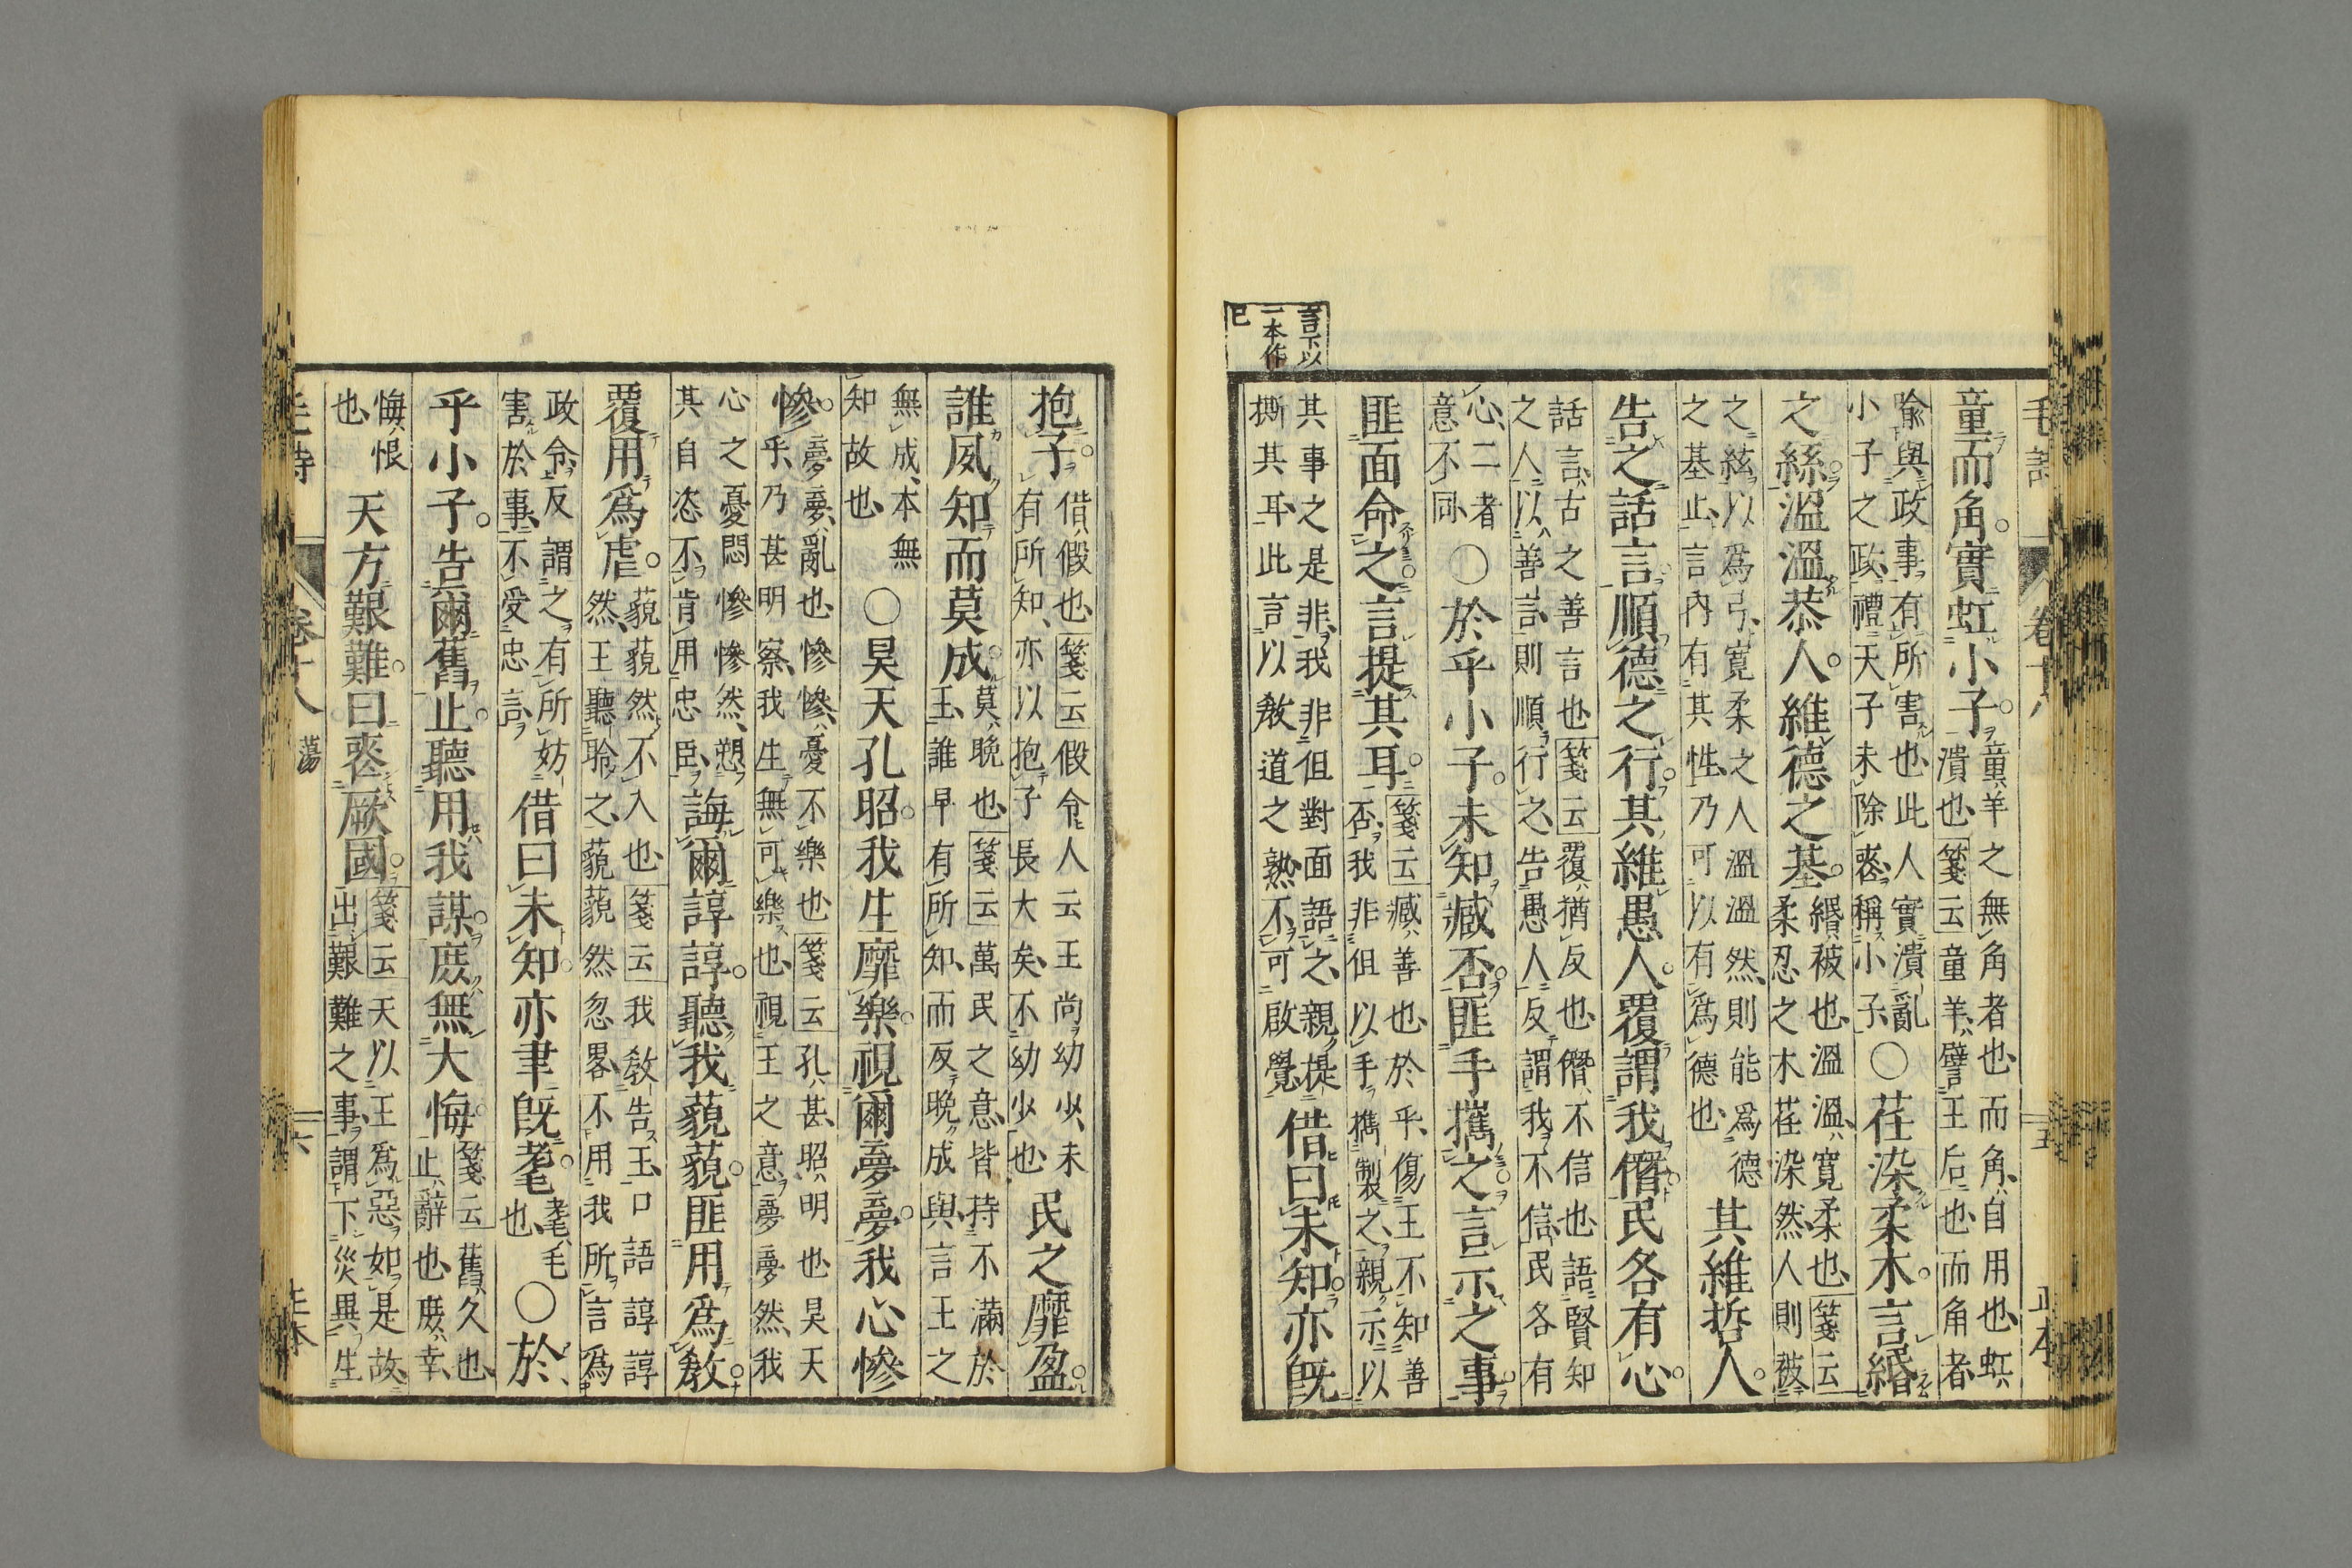 毛詩 卷十八 五 正本
童而角實虹小子
童羊之無角者也而角自用也虹
潰也箋云童羊譬王后也而角者
喩與政事有所害也此人實潰亂
小子之政禮天子未除喪稱小子
○荏染柔木言緡
之絲溫溫恭人維德之基
緡被也溫溫寬柔也箋云
柔忍之木荏染然人則被
之絃以爲弓寬柔之人溫溫然則能爲德
之基止言內有其性乃可以有爲德也
其維哲人
告之話言順德之行其維愚人覆謂我僭民各有心
話言古之善言也箋云覆猶反也僭不信也語賢知
之人以善言則順行之告愚人反謂我不信民各有
心二者
意不同
○於乎小子未知臧否匪手攜之言示之事
匪面命之言提其耳
箋云臧善也於乎傷王不知善
否我非但以手攜製之親示以
其事之是非我非但對面語之親提
撕其耳此言以敎道之熟不可啟覺
借曰未知亦既
言下以
一本作
已
抱子
借假也箋云假令人云王尚幼少未
有所知亦以抱子長大矣不幼少也
民之靡盈
誰夙知而莫成
莫晚也箋云萬民之意皆持不滿於
王誰早有所知而反晚成與言王之
無成本無
知故也
○昊天孔昭我生靡樂視爾夢夢我心慘
慘
夢夢亂也慘慘憂不樂也箋云孔甚昭明也昊天
乎乃甚明察我生無可樂也視王之意夢夢然我
心之憂悶慘慘然愬
其自恣不肯用忠臣
誨爾諄諄聽我藐藐匪用爲敎
覆用爲虐
藐藐然不入也箋云我敎告王口語諄諄
然王聽聆之藐藐然忽畧不用我所言爲
政令反謂之有所妨
害於事不受忠言
借曰未知亦聿既耄
耄毛
也
○於
乎小子告爾舊止聽用我謀庶無大悔
箋云舊久也
止辭也庶幸
悔恨
也
天方艱難曰喪厥國
箋云天以王爲惡如是故
出艱難之事謂下災異生
毛詩 卷十八 蕩 六 正本